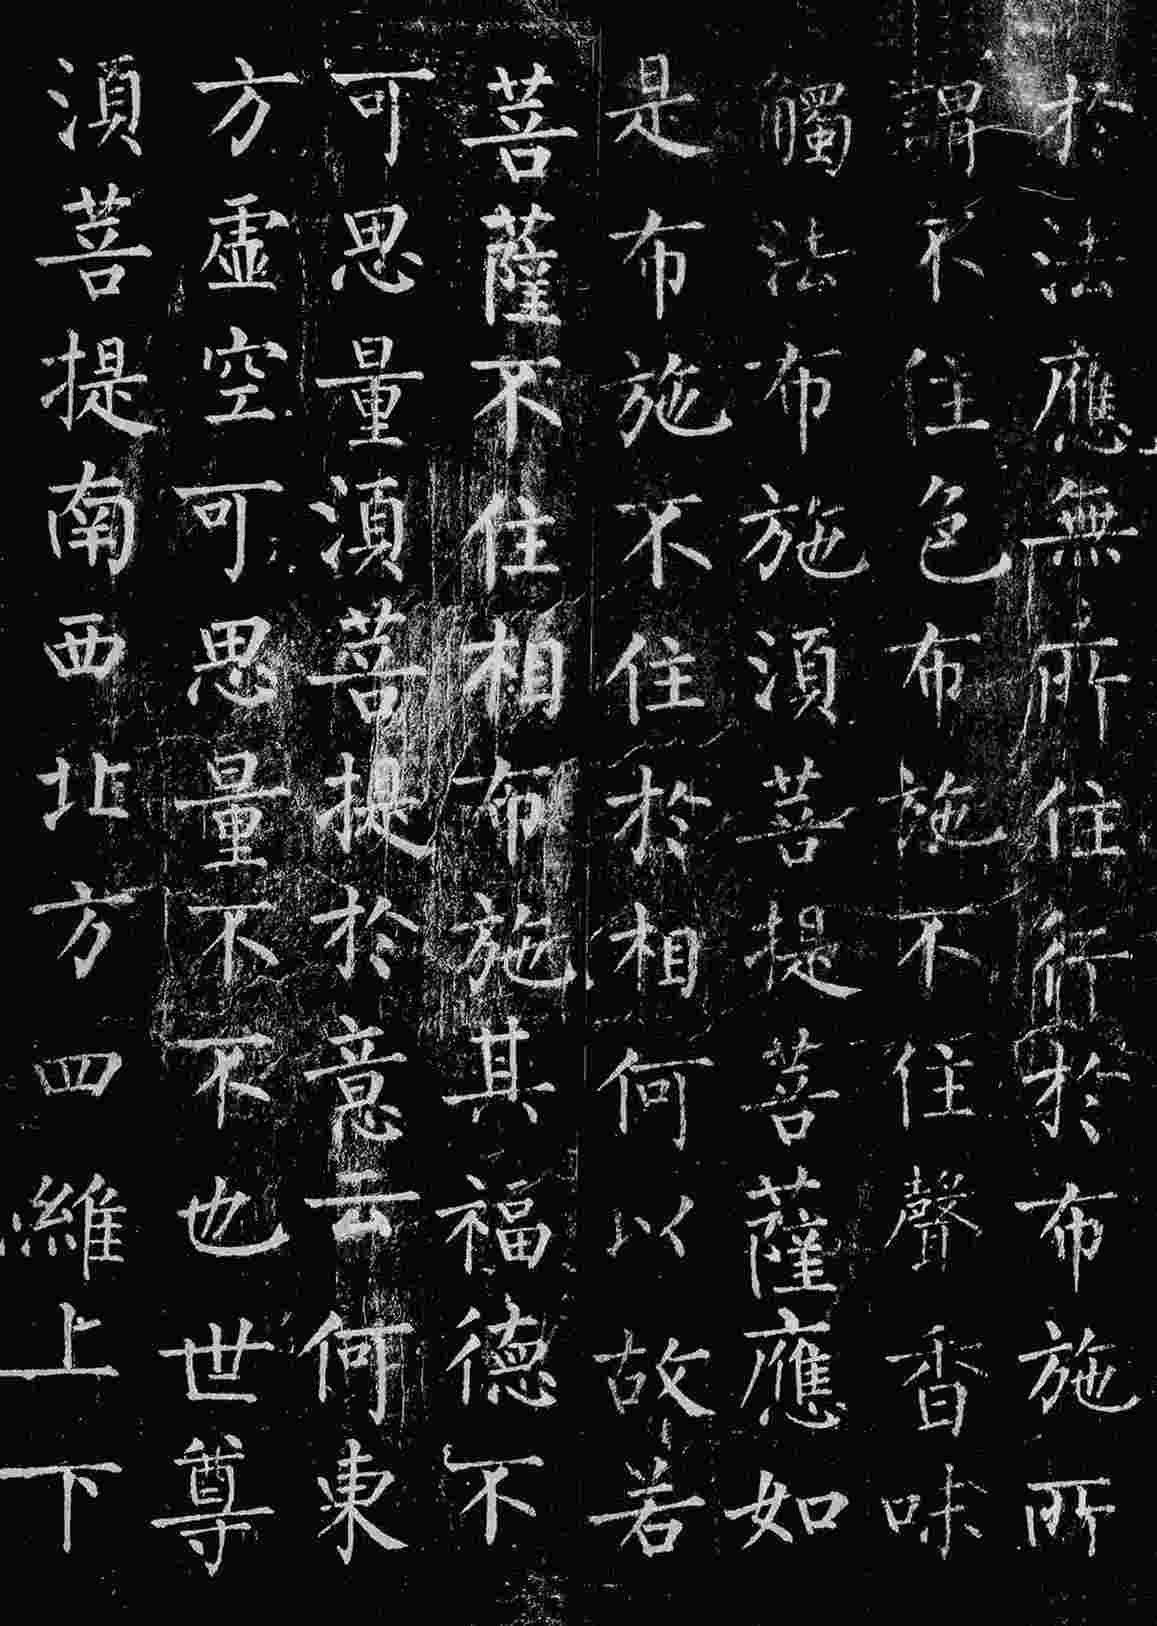 於法應無所住行於布施所
謂不住色布施不住聲香味
觸法布施湏菩提菩薩應如
是布施不住於相何以故若
菩薩不住相布施其福德不
可思量湏菩提於意云何東
方虛空可思量不不也世尊
湏菩提南西北方四維上下